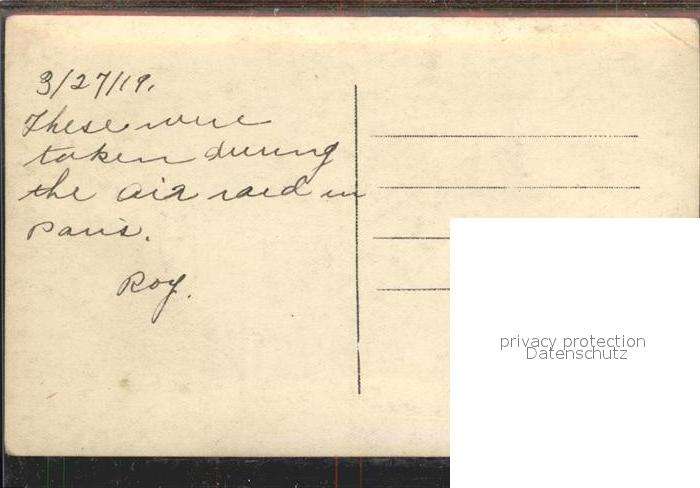 3/27/19.
These were
taken during
the air raid in
Paris.
Roy.
privacy protection
Datenschutz